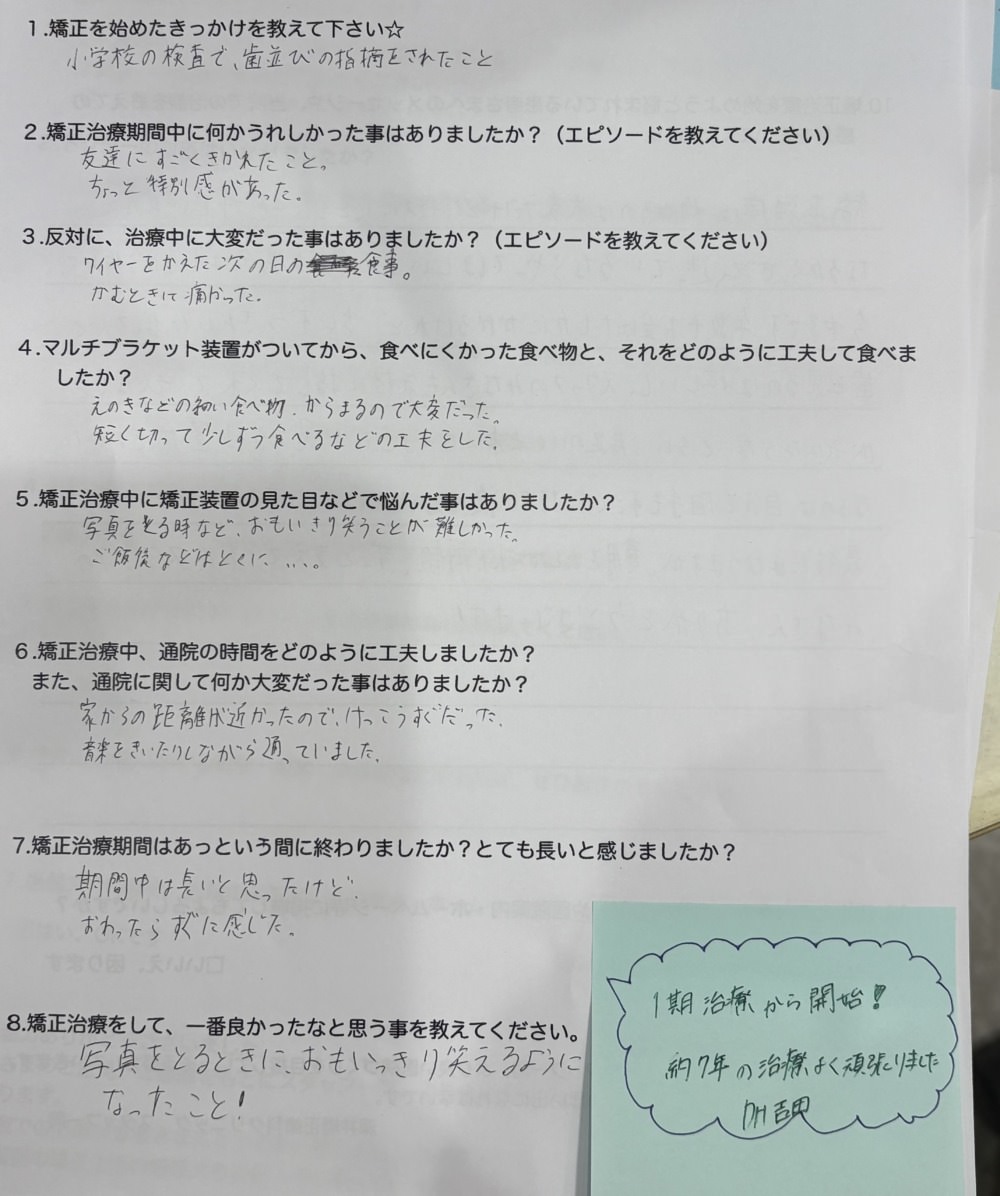 1.矯正を始めたきっかけを教えて下さい☆
小学校の検査で、歯並びの指摘をされたこと
2.矯正治療期間中に何かうれしかった事はありましたか？（エピソードを教えてください）
友達にすごくきかれたこと。
ちょっと特別感があった。
3.反対に、治療中に大変だった事はありましたか？（エピソードを教えてください）
ワイヤーをかえた次の日の食事。
かむときに痛かった。
4.マルチブラケット装置がついてから、食べにくかった食べ物と、それをどのように工夫して食べま
したか？
えのきなどの細い食べ物、からまるので大変だった。
短く切って少しずつ食べるなどの工夫をした。
5.矯正治療中に矯正装置の見た目などで悩んだ事はありましたか？
写真を撮る時など、おもいきり笑うことが難しかった。
ご飯後などはとくに、、、。
6.矯正治療中、通院の時間をどのように工夫しましたか？
また、通院に関して何か大変だった事はありましたか？
家からの距離が近かったので、けっこうすぐだった。
音楽をきいたりしながら通っていました。
7.矯正治療期間はあっという間に終わりましたか？とても長いと感じましたか？
期間中は長いと思ったけど、
おわったらすぐに感じた。
8.矯正治療をして、一番良かったなと思う事を教えてください。
写真をとるときに、おもいっきり笑えるように
なったこと！
1期治療から開始！
約7年の治療よく頑張りました